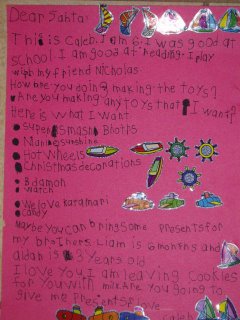 Dear Santa:
This is Caleb. I am 6. I was good at
school I am good at reading. I play
with my friend Nicholas
How are you doing making the toys?
Are you making any toys that I want?
Here is what I want
Super smash brothrs
sunshine
Hot Wheels
Christmas decorations
watch
We love katamari
Candy
Maybe you can bring some presents for
my brothers. Liam is 6 months and
aidan is 3 years old
I love you I am leaving cookies
for you with milk. Are you going to
give me presents? Love
caleb